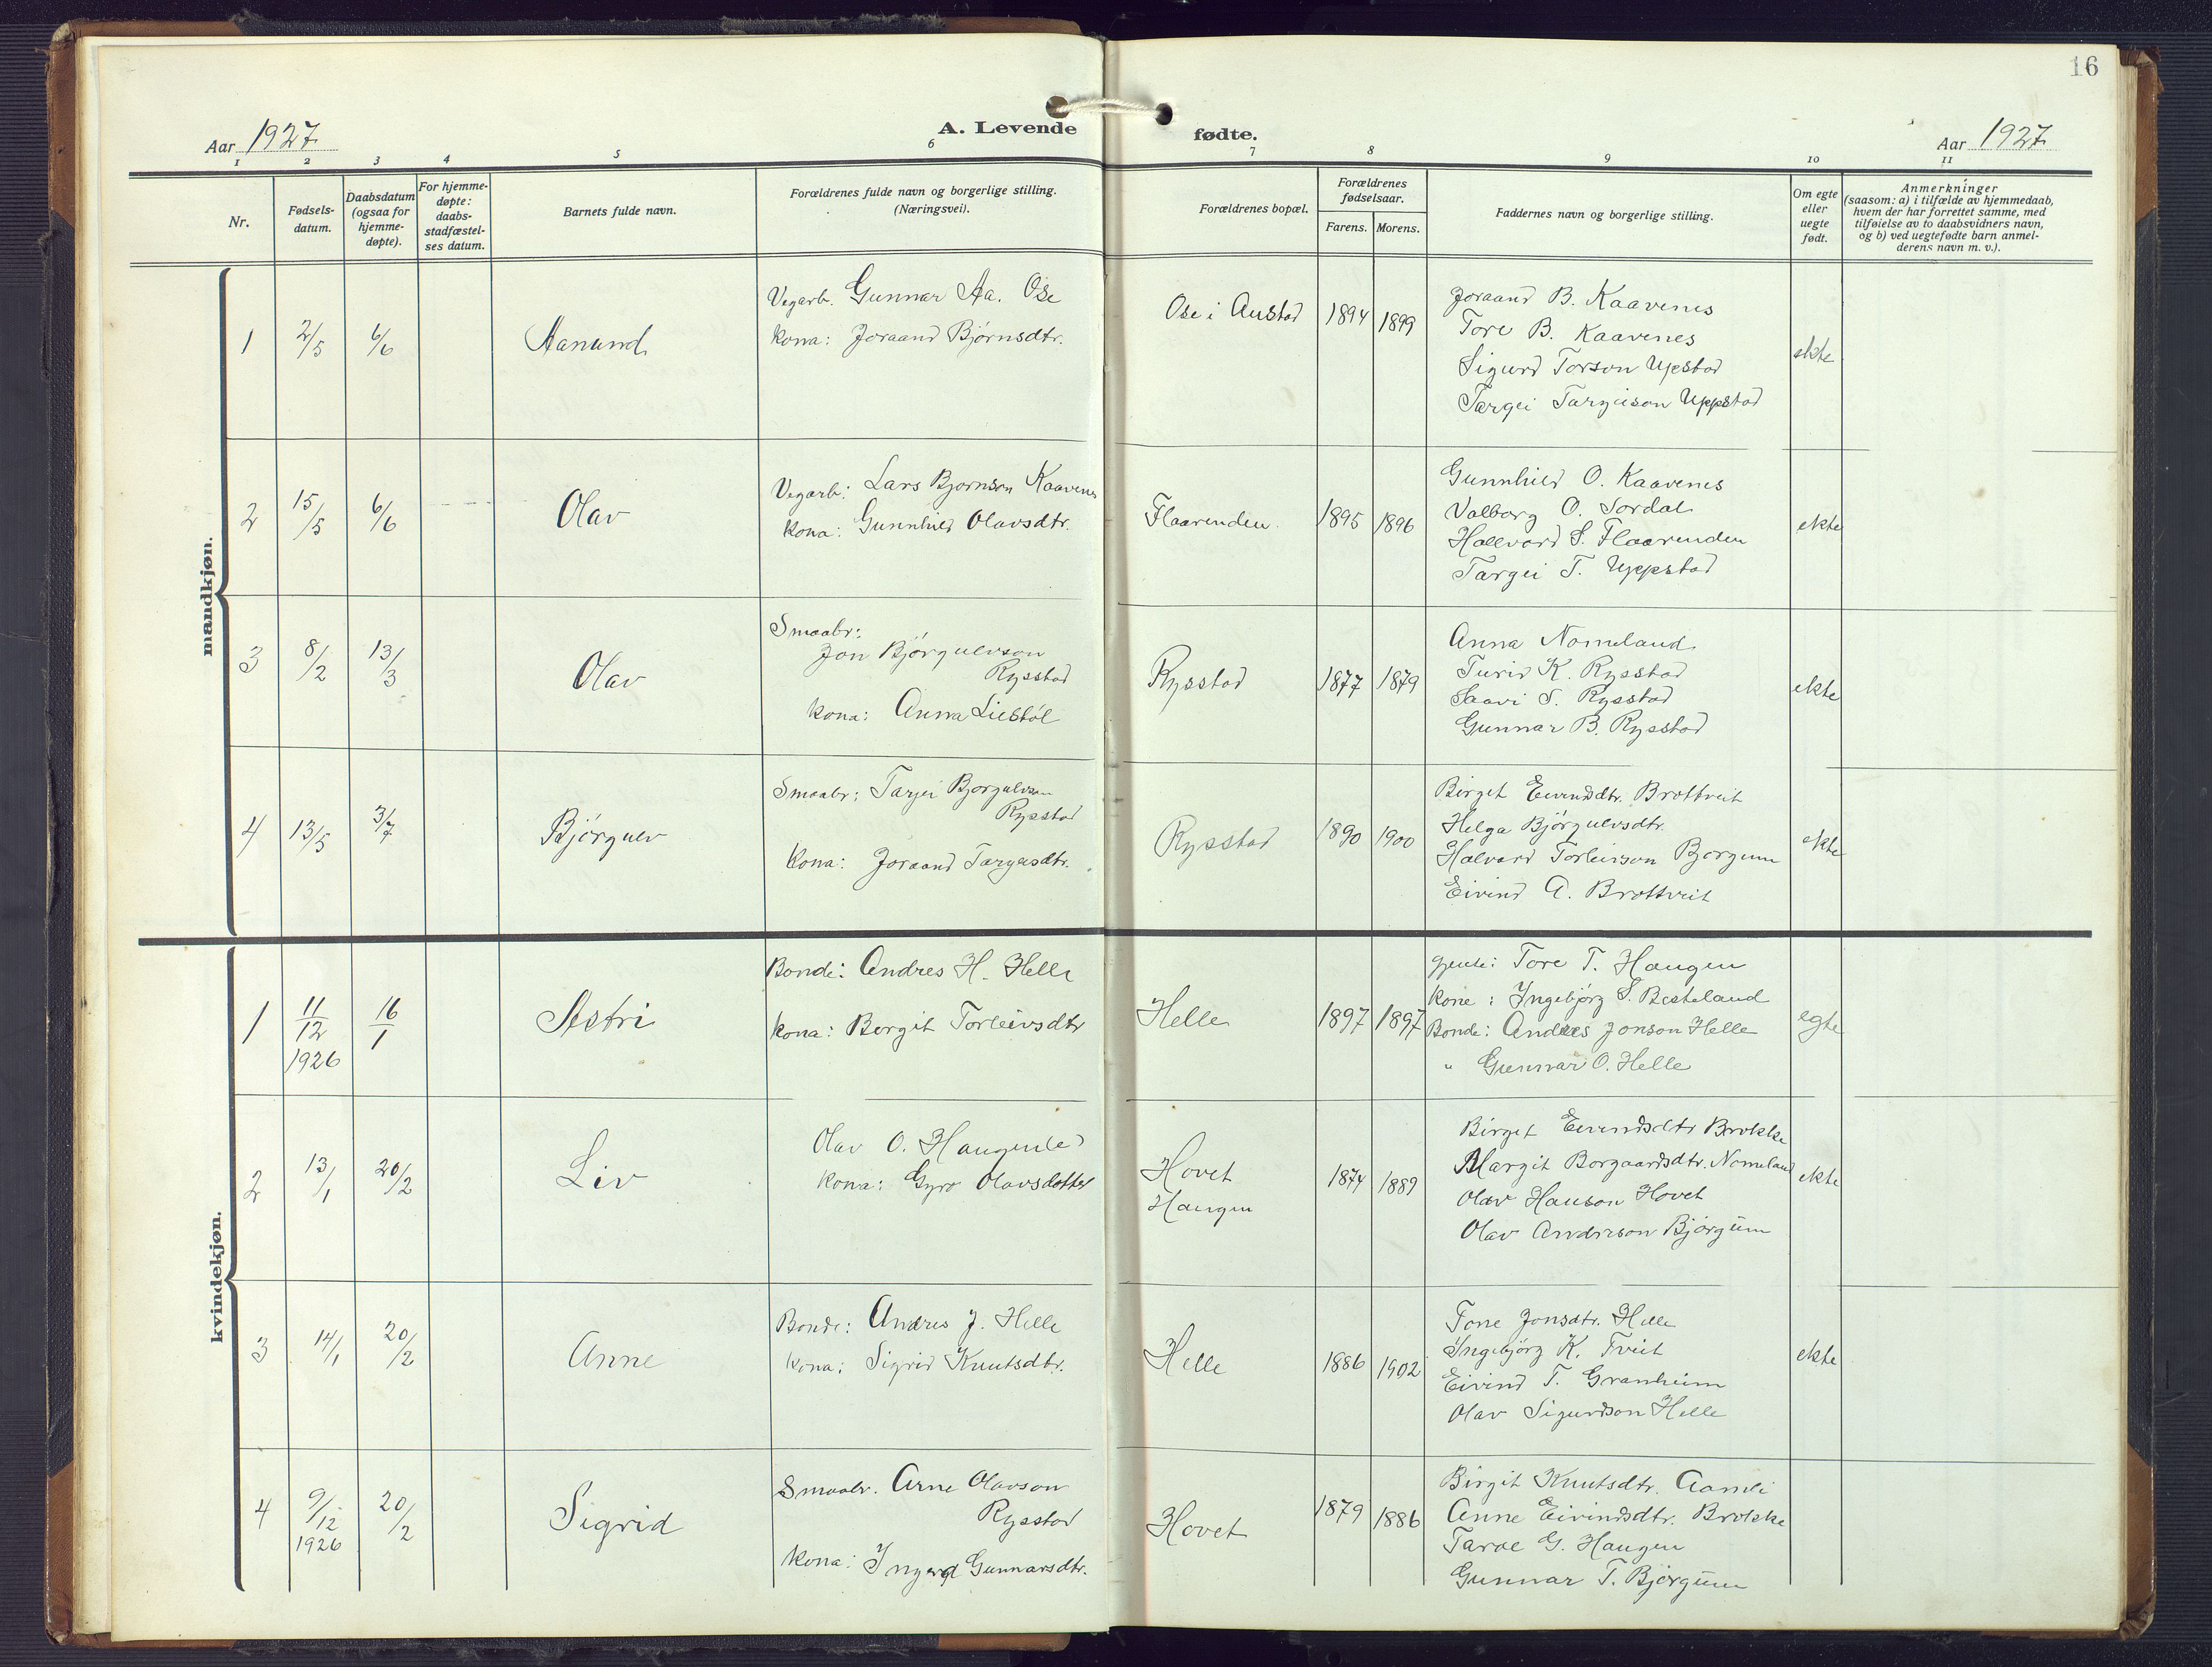 16
Aar 1927
A. Levende fødte.
Aar 1927
1 2 3 4 5 6 7 8 9 10 11
Nr.
Fødsels-
datum.
Daabsdatum
(ogsaa for
hjemme-
døpte).
For hjemme-
døpte:
daabs-
stadfæstel-
ses datum.
Barnets fulde navn.
Forældrenes fulde navn og borgerlige stilling.
(Næringsvei).
Forældrenes bopæl.
Forældrenes
fødselsaar.
Farens. Morens.
Faddernes navn og borgerlige stilling.
Om egte
eller
uegte
født.
Anmerkninger
(saasom: a) i tilfælde av hjemmedaab,
hvem der har forrettet samme, med
tilføielse av to daabsvidners navn,
og b) ved uegtefødte barn anmel-
derens navn m. v.).
mandkjøn.
1 2/5 6/6 Aanund
Vegarb. Gunnar Aa. Ose
kona: Joraand Bjørnsdtr.
Ose i Austad 1894 1899
Joraand B. Kaavenes
Tore B. Kaavenes
Sigurd Torson Upstad
Targei Targeison Uppstad
ekte
2 15/5 6/6 Olav
Vegarb: Lars Bjørnson Kaavenes
kona: Gunnhild Olavsdtr.
Flaarenden. 1895 1896
Gunnhild O. Kaavenes
Valborg O. Sordal
Hallvard S. Flaarenden
Targei T. Uppstad
ekte
3 8/2 13/3 Olav
Smaabr:
Jon Bjørgulvson
Rysstad
kona: Anna Liestøl
Rysstad 1877 1879
Anna Nomeland
Turid K. Rysstad
Saavi S. Rysstad
Gunnar B. Rysstad
ekte
4 13/5 3/7 Bjørgulv
Smaabr: Targei Bjørgulvson
Rysstad
Kona: Joraand Targeisdtr.
Rysstad 1890 1900
Birget Eivindsdtr. Brottveit
Helga Bjørgulvsdtr.
Halvard Torleivson Bjørgum
Eivind A. Brottveit
ekte
kvindekjøn.
1 11/12 1926 16/1 Astri
Bonde: Andres H. Helle
kona: Bergit Torleivsdtr
Helle 1897 1897
Gjente: Tore T. Haugen
Kone: Ingebjørg S. Besteland
Bonde: Andres Jonson Helle
" Gunnar O. Helle
egte
2 13/1 20/2 Liv
Olav O. Haugen
kona: Gyro Olavsdotter
Hovet
Haugen
1874 1889
Birget Eivindsdtr Brokke
Margit Borgaardsdtr. Nomeland
Olav Hauson Hovet
Olav Andreson Bjørgum
ekte
3 14/1 20/2 Anne
Bonde: Andres J. Helle
kona: Sigrid Knutsdtr.
Helle 1886 1902
Tone Jonsdtr. Helle
Ingebjørg K. Tveit
Eivind T. Granheim
Olav Sigurdson Helle
ekte
4 9/12 1926 20/2 Sigrid
Smaabr. Arne Olavson
Rysstad
Kona: Ingerd Gunnarsdtr.
Hovet 1879 1886
Birgit Knutsdtr. Aamli
Anne Eivindsdtr. Brokke
Taroe G. Haugen
Gunnar T. Bjørgum